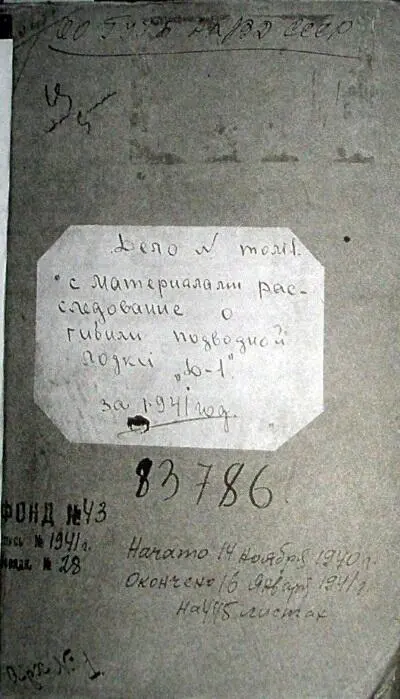 НКВД СССР
Дело № том 1.
с материалами рас-
следование о
гибили подводной
лодки „Д-1".
за 1941 год.
83786.
ФОНД № 43
№ 1941 г.
№ 28
Начато 14 ноября 1940 г.
Окончено 16 января 1941 г.
На 445 листах